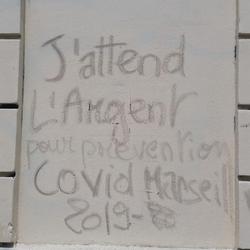 J'attend
L'Argent
pour prèevention
Covid Marseill
2019-